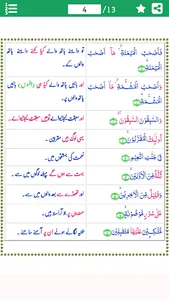 4 /13
فَأَصْحَٰبُ الْمَيْمَنَةِ مَآ أَصْحَٰبُ
الْمَيْمَنَةِ
تو داہنے ہاتھ والے کیا کہنے داہنے ہاتھ
والوں کے۔
وَأَصْحَٰبُ الْمَشْـَٔمَةِ مَآ أَصْحَٰبُ
الْمَشْـَٔمَةِ
اور بائیں ہاتھ والے کیا ہی (افسوس) بائیں ہاتھ
والوں پر۔
وَالسَّٰبِقُونَ السَّٰبِقُونَ
اور سبقت لیجانے والے سبقت لیجانے والے ہیں۔
أُو۟لَٰٓئِكَ الْمُقَرَّبُونَ
یہی لوگ ہیں مقربین۔
فِى جَنَّٰتِ النَّعِيمِ
نعمت کی جنتوں میں۔
ثُلَّةٌ مِّنَ الْأَوَّلِينَ
بہت سے ہوں گے پہلے لوگوں میں سے۔
وَقَلِيلٌ مِّنَ الْءَاخِرِينَ
اور تھوڑے سے بعد والوں میں سے۔
عَلَىٰ سُرُرٍ مَّوْضُونَةٍ
مسندوں پر جو آراستہ ہیں۔
مُّتَّكِـِٔينَ عَلَيْهَا مُتَقَٰبِلِينَ
تکیہ لگائے ان پر آمنے سامنے۔